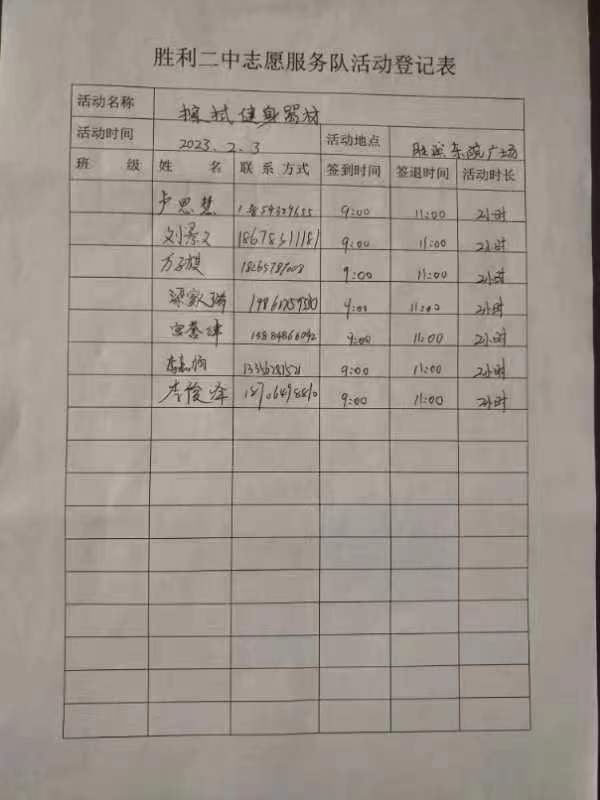 胜利二中志愿服务队活动登记表
活动名称 擦拭健身器材
活动时间 2023.2.3 活动地点 胜滨东院广场
班 级 姓 名 联系方式 签到时间 签退时间 活动时长
卢思慧 9:00 11:00 2小时
刘景文 18678311181 9:00 11:00 2小时
9:00 11:00 2小时
梁家瑞 9:00 11:00 2小时
9:00 11:00 2小时
9:00 11:00 2小时
李俊泽 18706498810 9:00 11:00 2小时